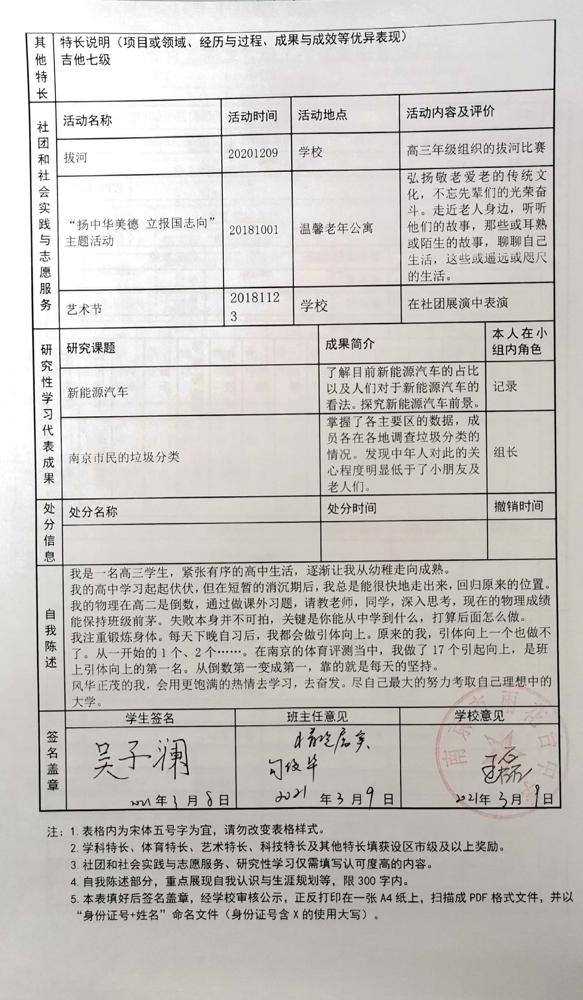 其他特长
特长说明（项目或领域、经历与过程、成果与成效等优异表现）
吉他七级
社团和社会实践与志愿服务
活动名称 活动时间 活动地点 活动内容及评价
拔河 20201209 学校 高三年级组织的拔河比赛
“扬中华美德 立报国志向”
主题活动
20181001
温馨老年公寓
弘扬敬老爱老的传统文
化，不忘先辈们的光荣奋
斗。走近老人身边，听听
他们的故事，那些或耳熟
或陌生的故事，聊聊自己
生活，这些或遥远或咫尺
的生活。
艺术节
2018112
3
学校
在社团展演中表演
研究性学习代表成果
研究课题
成果简介
本人在小
组内角色
新能源汽车
了解目前新能源汽车的占比
以及人们对于新能源汽车的
看法。探究新能源汽车前景。
记录
南京市民的垃圾分类
掌握了各主要区的数据，成
员各在各地调查垃圾分类的
情况。发现中年人对此的关
心程度明显低于了小朋友及
老人们。
组长
处分信息
处分名称 处分时间 撤销时间
自我陈述
我是一名高三学生，紧张有序的高中生活，逐渐让我从幼稚走向成熟。
我的高中学习起起伏伏，但在短暂的消沉期后，我总是能很快地走出来，回归原来的位置。
我的物理在高二是倒数，通过做课外习题，请教老师，同学，深入思考，现在的物理成绩
能保持班级前茅。失败本身并不可拍，关键是你能从中学到什么，打算后面怎么做。
我注重锻炼身体。每天下晚自习后，我都会做引体向上。原来的我，引体向上一个也做不
了。从一开始的1个、2个……。在南京的体育评测当中，我做了17个引起向上，是班
上引体向上的第一名。从倒数第一变成第一，靠的就是每天的坚持。
风华正茂的我，会用更饱满的热情去学习，去奋发。尽自己最大的努力考取自己理想中的
大学。
签名盖章
学生签名 班主任意见 学校意见
吴子澜
2021年3月8日 2021年3月9日 2021年3月9日
注：1. 表格内为宋体五号字为宜，请勿改变表格样式。
2. 学科特长、体育特长、艺术特长、科技特长及其他特长填获设区市级及以上奖励。
3. 社团和社会实践与志愿服务、研究性学习仅需填写认可度高的内容。
4. 自我陈述部分，重点展现自我认识与生涯规划等，限300字内。
5. 本表填好后签名盖章，经学校审核公示，正反打印在一张A4纸上，扫描成PDF格式文件，并以
“身份证号+姓名”命名文件（身份证号含X的使用大写）。